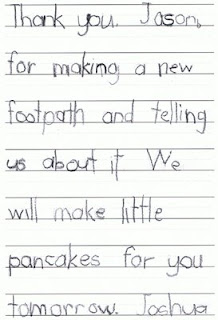 Thank you. Jason,
for making a new
footpath and telling
us about it We
will make little
pancakes for you
tomorrow. Joshua